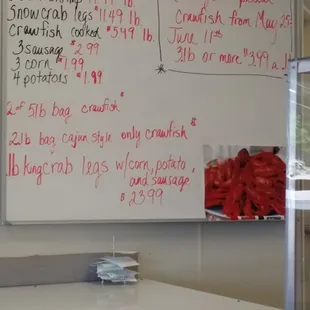 Snowcrab legs $11.49 lb.
Crawfish cooked $5.49 lb.
3 sausage $2.99
3 corn $1.99
4 potatoes $1.99
2 of 5lb bag crawfish
2lb bag cajun style only crawfish $
1lb kingcrab legs w/corn, potato,
and sausage
$ 23.99
Crawfish from May 25-
June 11th
3lb or more $3.99 a